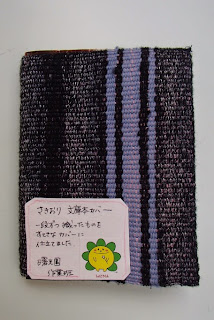 さきおり 文庫本カバー
一段ずつ 織ったものを
すてきな カバーに
仕立てました
作業班